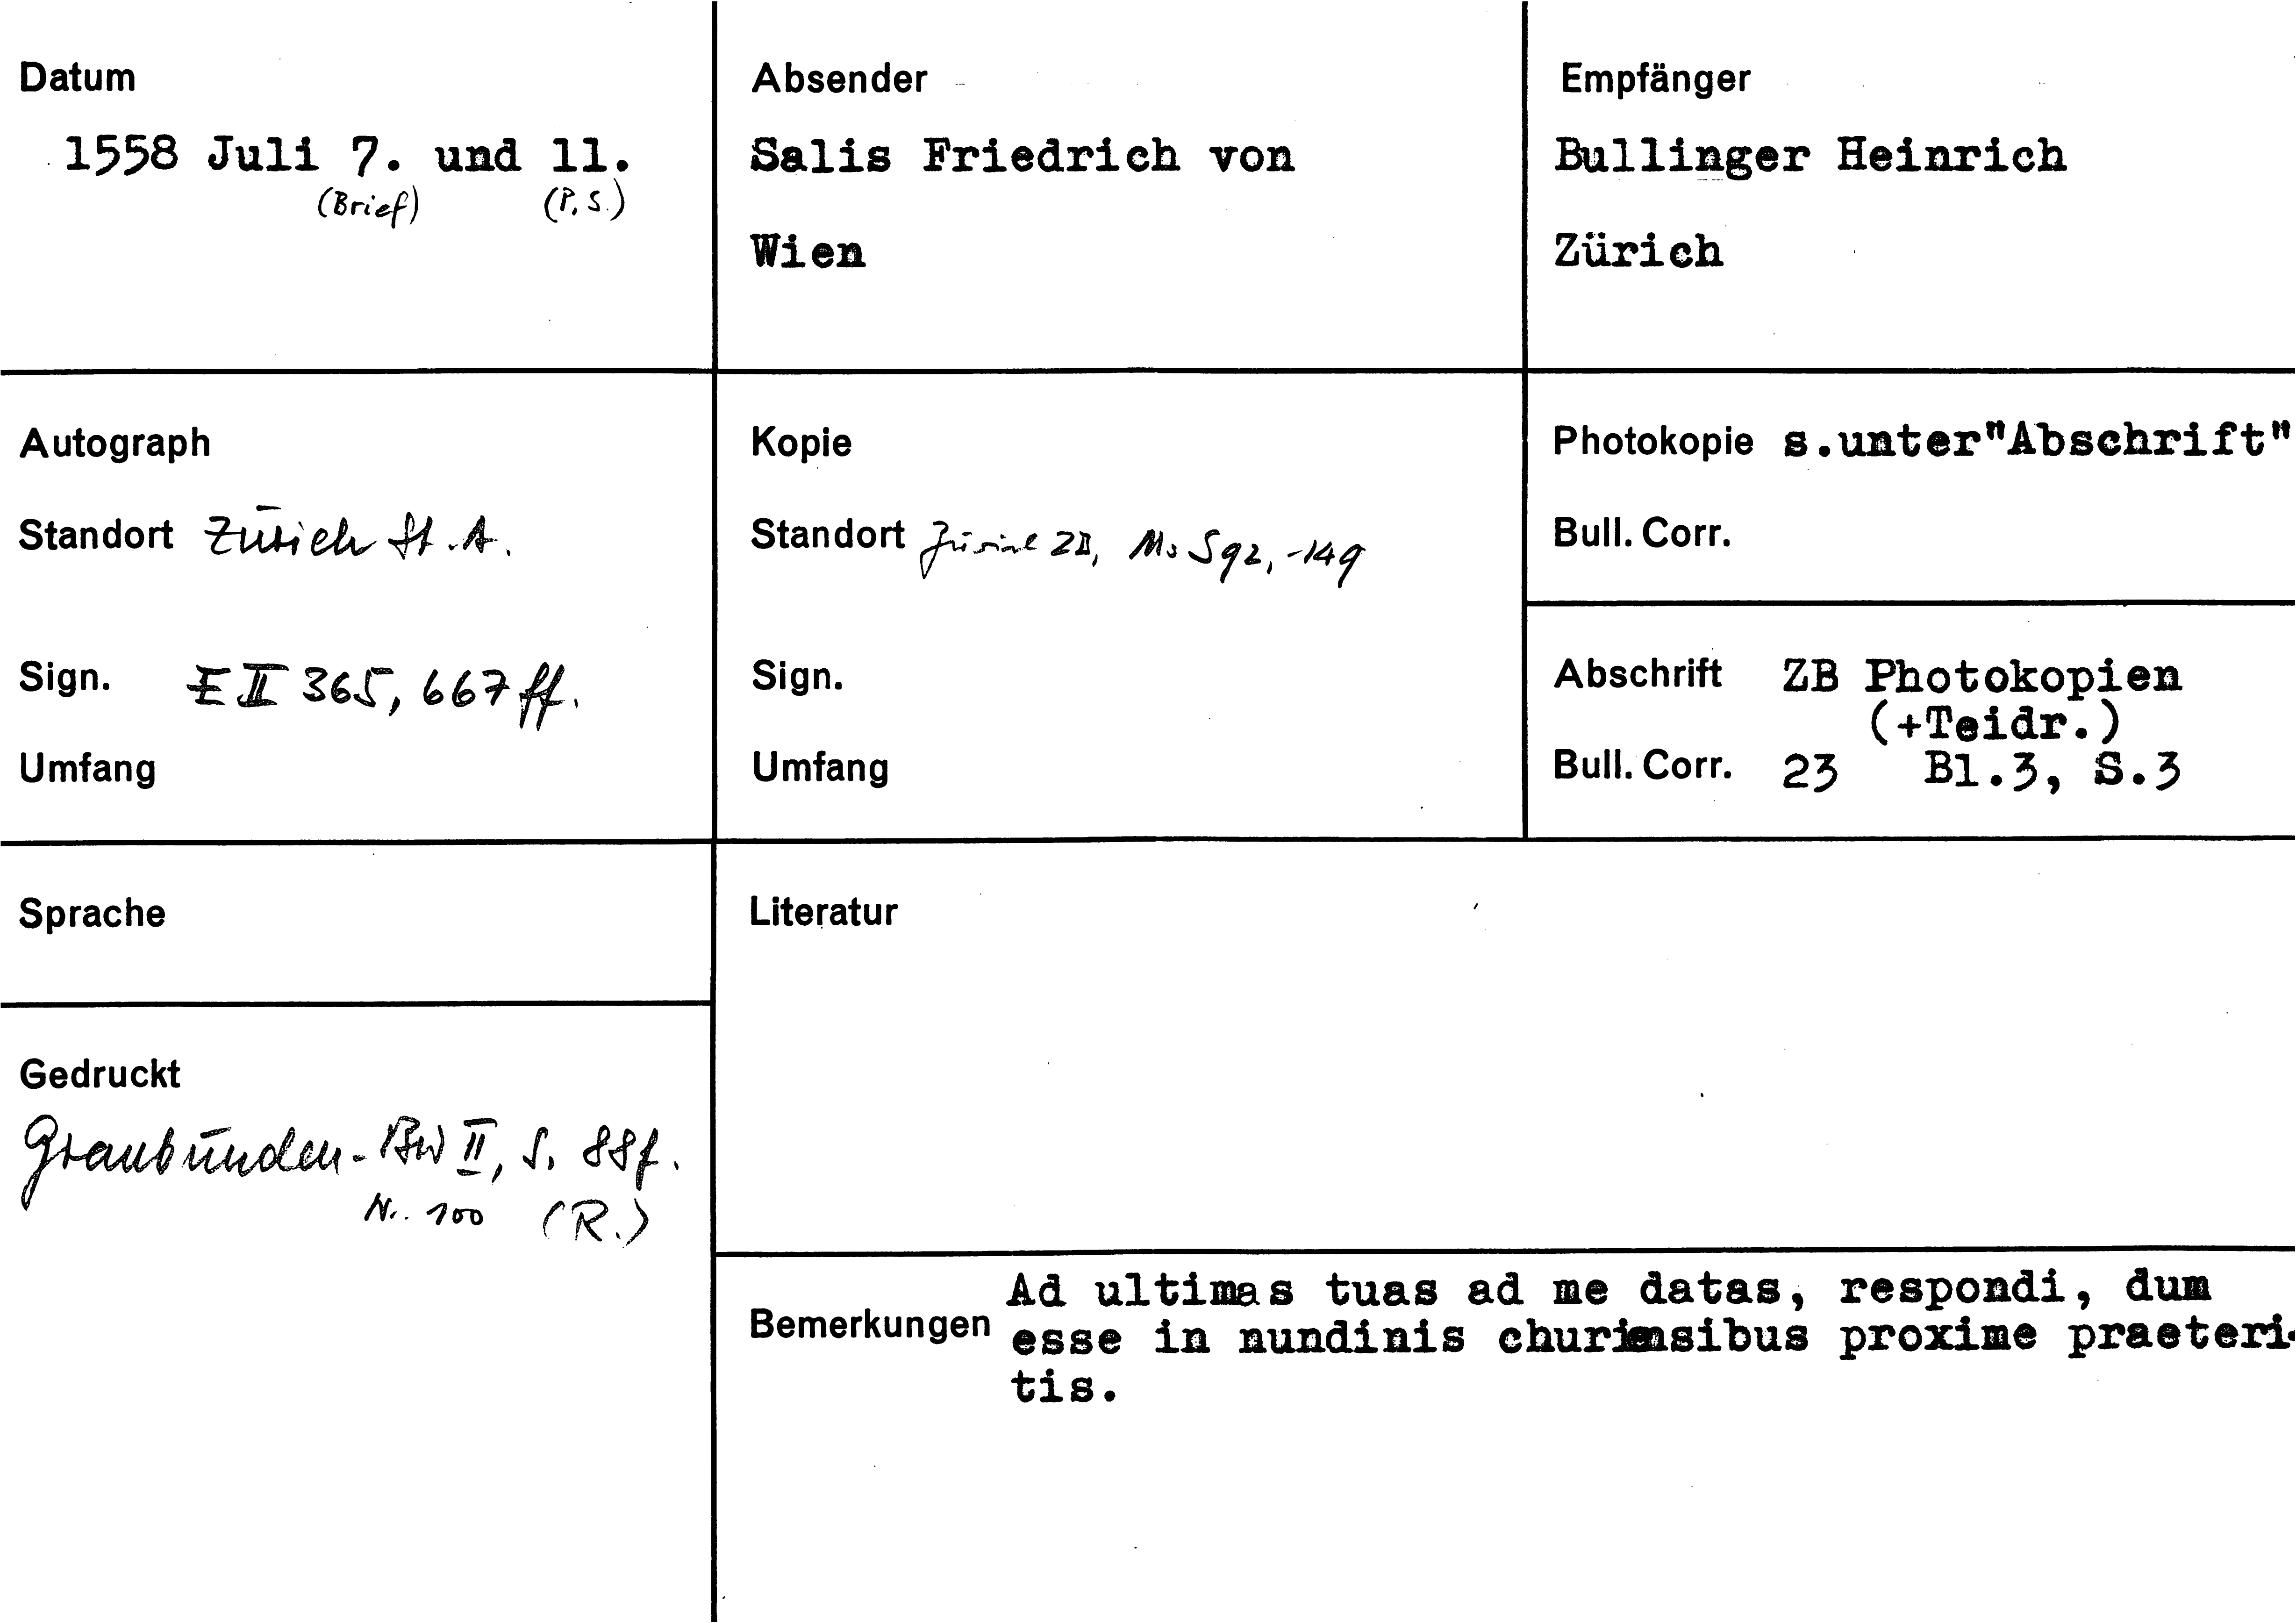 Datum
1558 Juli 7. und 11.
(Brief) (P.S.)
Absender
Salis Friedrich von
Wien
Empfänger
Bullinger Heinrich
Zürich
Autograph
Standort Zürich St.A.
Sign. E II 365, 667 ff.
Umfang
Kopie
Standort Zürich ZB, Ms S 92, -149
Sign.
Umfang
Photokopie s.unter"Abschrift"
Bull. Corr.
Abschrift ZB Photokopien
(+Teidr.)
Bull. Corr. 23 Bl.3, S.3
Sprache
Literatur
Gedruckt
Graubünden-BW II, S. 88f.
Nr. 100 (R.)
Bemerkungen
Ad ultimas tuas ad me datas, respondi, dum
esse in nundinis churiensibus proxime praeteri-
tis.